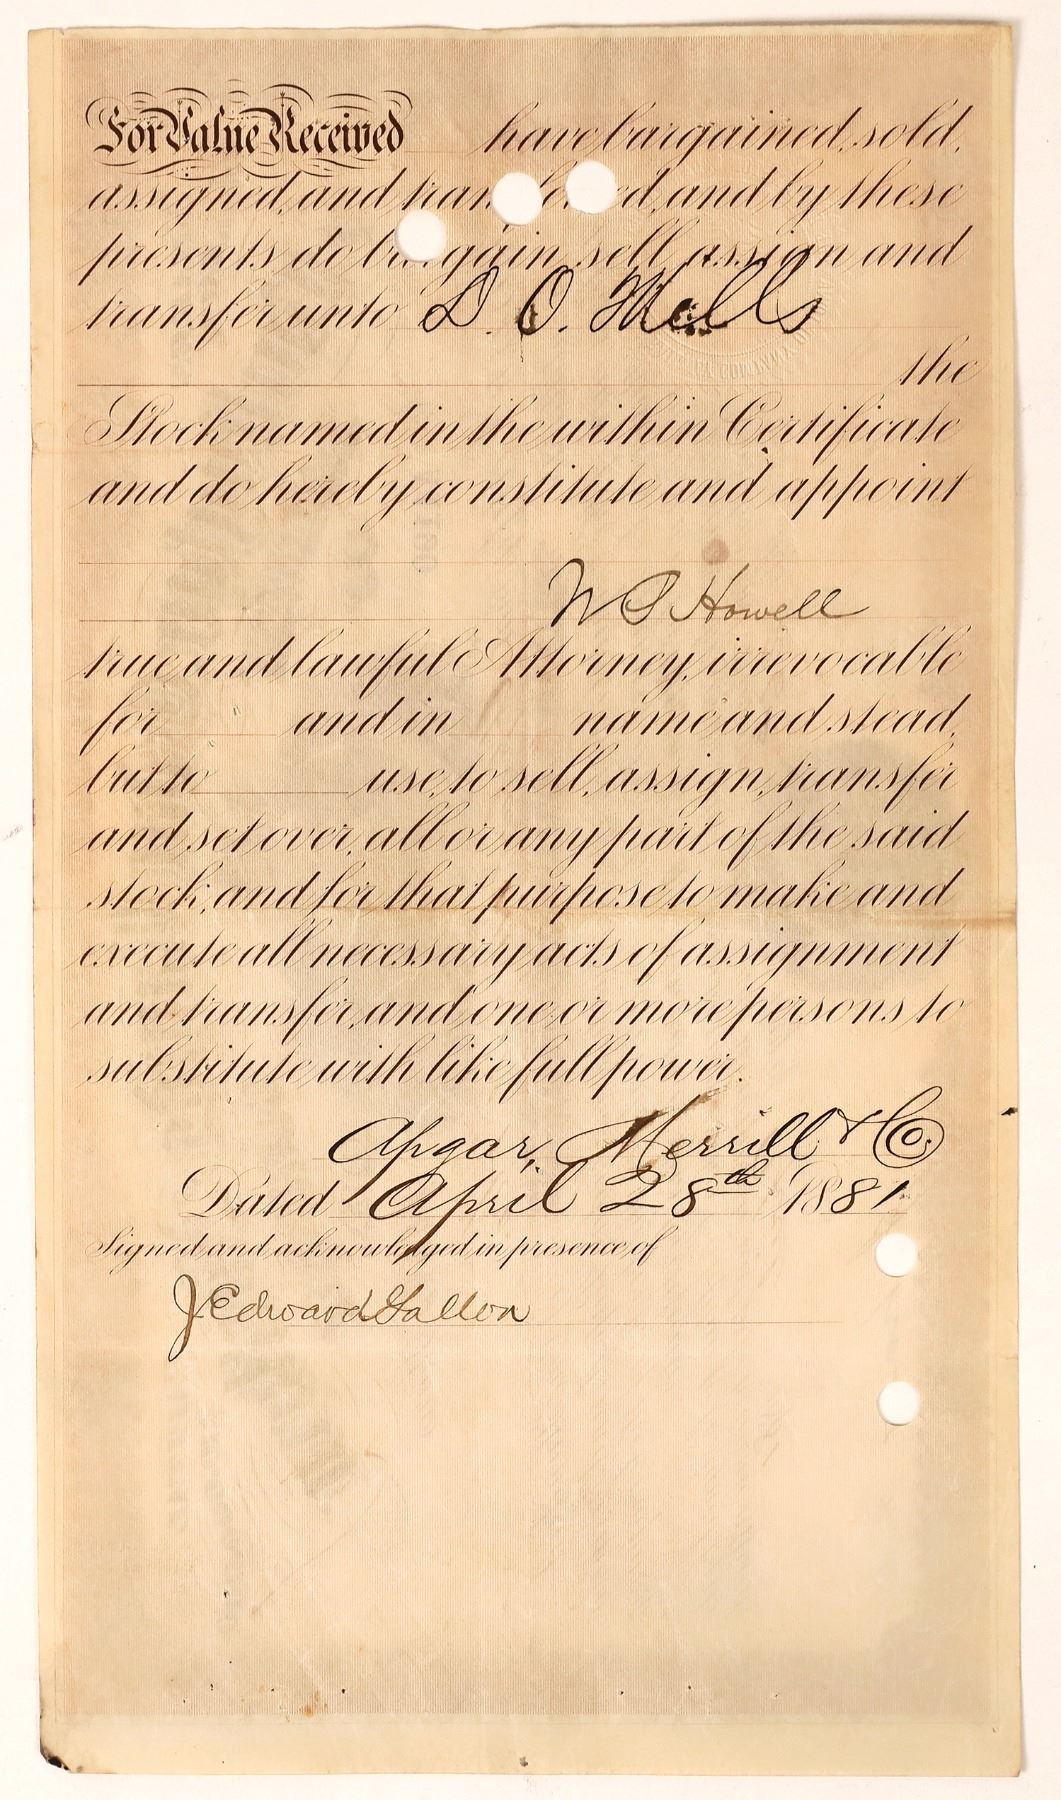 For Value Received have bargained, sold,
assigned, and transferred, and by these
presents do bargain, sell, assign and
transfer unto D. O. Mills
the
Stock named in the within Certificate
and do hereby constitute and appoint
W P Howell
true and lawful Attorney, irrevocable
for and in name and stead,
but to use, to sell, assign, transfer
and set over, all or any part of the said
stock, and for that purpose to make and
execute all necessary acts of assignment
and transfer, and one or more persons to
substitute with like full power.
Apgar, Merrill & Co.
Dated April 28th 1881
Signed and acknowledged in presence of
J Edward